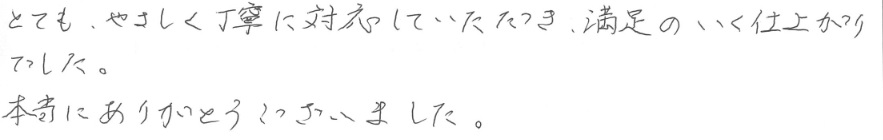 とても、やさしく丁寧に対応していただき、満足のいく仕上がり
でした。
本当にありがとうございました。